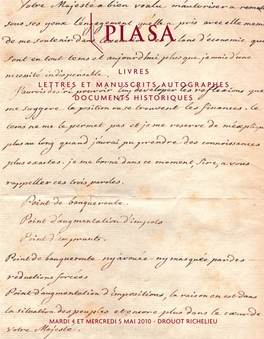 Votre Majesté a bien voulu m'autoriser a remet
sous ses yeux l'engagement qu'elle a pris avec elle mem
de me soutenir dans d'économie que
PIASA
sont en tout tems et aujourd'hui plus que jamais d'une
necessité indispensable.
LIVRES
LETTRES ET MANUSCRITS AUTOGRAPHES
J'aurois desiré pouvoir lui developer les reflexions que
DOCUMENTS HISTORIQUES
me suggere la position ou se trouvent les finances. le
tems ne me le permet pas et je me reserve de m'expliq
plus au long quand j'aurai pu prendre des connoissances
plus exactes. je me borne dans ce moment Sire, a vous
rappeller ces trois paroles.
Point de banqueroute.
Point d'augmentation d'impots
Point d'emprunts.
Point de banqueroute ny avouée, ny masquée par des
réductions forcées
Point d'augmentation d'Impositions, la raison en est dans
la situation des peuples et encore plus dans le cœur de
MARDI 4 ET MERCREDI 5 MAI 2010 - DROUOT RICHELIEU
Votre Majesté.